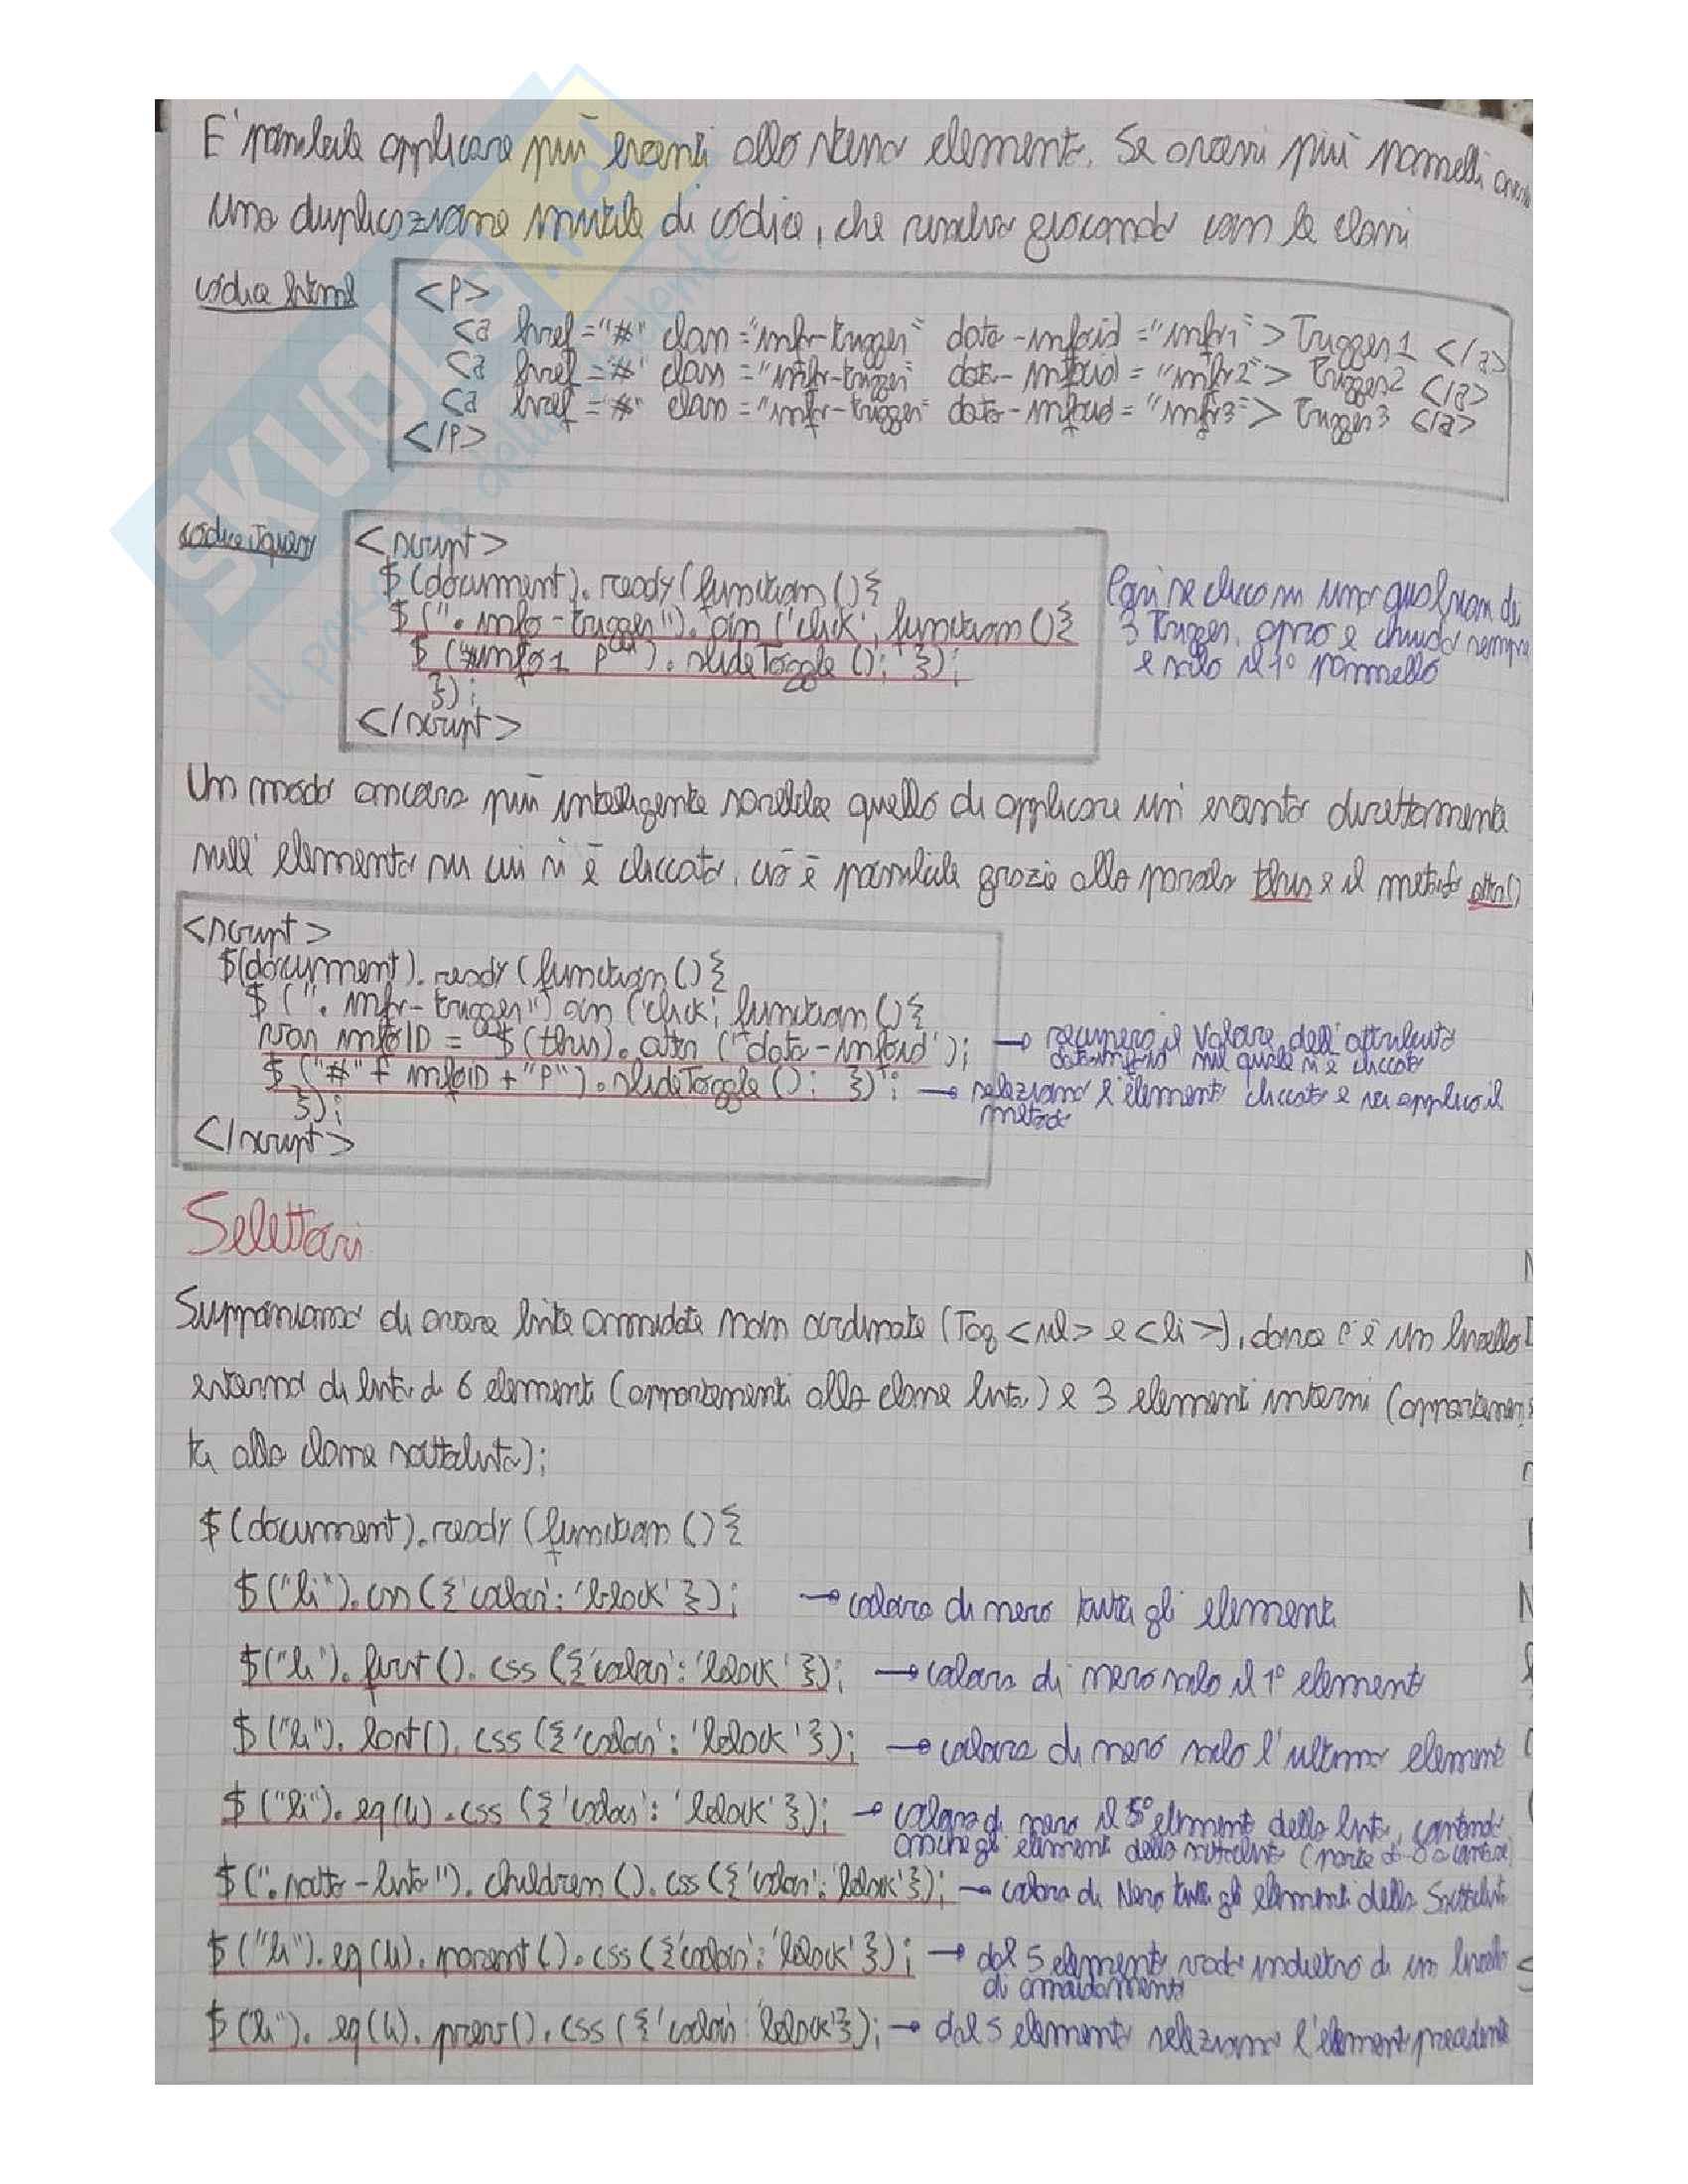 E' possibile applicare più eventi allo stesso elemento. Se avessi più pannelli avrei
una duplicazione inutile di codice, che risolvo giocando con le classi
codice html
<p>
<a href="#" class="info-trigger" data-infoid="info1"> Trigger1 </a>
<a href="#" class="info-trigger" data-infoid="info2"> Trigger2 </a>
<a href="#" class="info-trigger" data-infoid="info3"> Trigger3 </a>
</p>
codice Jquery
<script>
$(document).ready(function(){
$(".info-trigger").on('click', function(){
$("#info1 p").slideToggle(); });
});
</script>
Così se clicco su uno qualsiasi dei
3 Trigger, apro e chiudo sempre
e solo il 1° pannello
Un modo ancora più intelligente sarebbe quello di applicare un evento direttamente
sull'elemento su cui si è cliccato, ciò è possibile grazie alla parola this e il metodo attr()
<script>
$(document).ready(function(){
$(".info-trigger") on ('click', function(){
var infoID = $(this).attr("data-infoid"); → recupero il valore dell'attributo
data-infoid sul quale si è cliccato
$("#" + infoID + "p").slideToggle(); }); → seleziono l'elemento cliccato e ci applico il
metodo
});
</script>
Selettori
Supponiamo di avere liste annidate non ordinate (Tag <ul> e <li>), dove c'è un livello
esterno di lista di 6 elementi (appartenenti alla classe lista) e 3 elementi interni (appartenen
ti alla classe sottolista);
$(document).ready(function(){
$("li").css({'color': 'black'}); → coloro di nero tutti gli elementi
$("li").first().css({'color': 'black'}); → coloro di nero solo il 1° elemento
$("li").last().css({'color': 'black'}); → coloro di nero solo l'ultimo elemento
$("li").eq(4).css({'color': 'black'}); → coloro di nero il 5° elemento della lista, contando
anche gli elementi della sottolista (parte da 0 a contare)
$(".sotto-lista").children().css({'color': 'black'}); → coloro di Nero tutti gli elementi della Sottolista
$("li").eq(4).parent().css({'color': 'black'}); → dal 5 elemento vado indietro di un livello
di annidamento
$("li").eq(4).prev().css({'color': 'black'}); → dal 5 elemento seleziono l'elemento precedente
SKUOLA.net
il portale dello studente